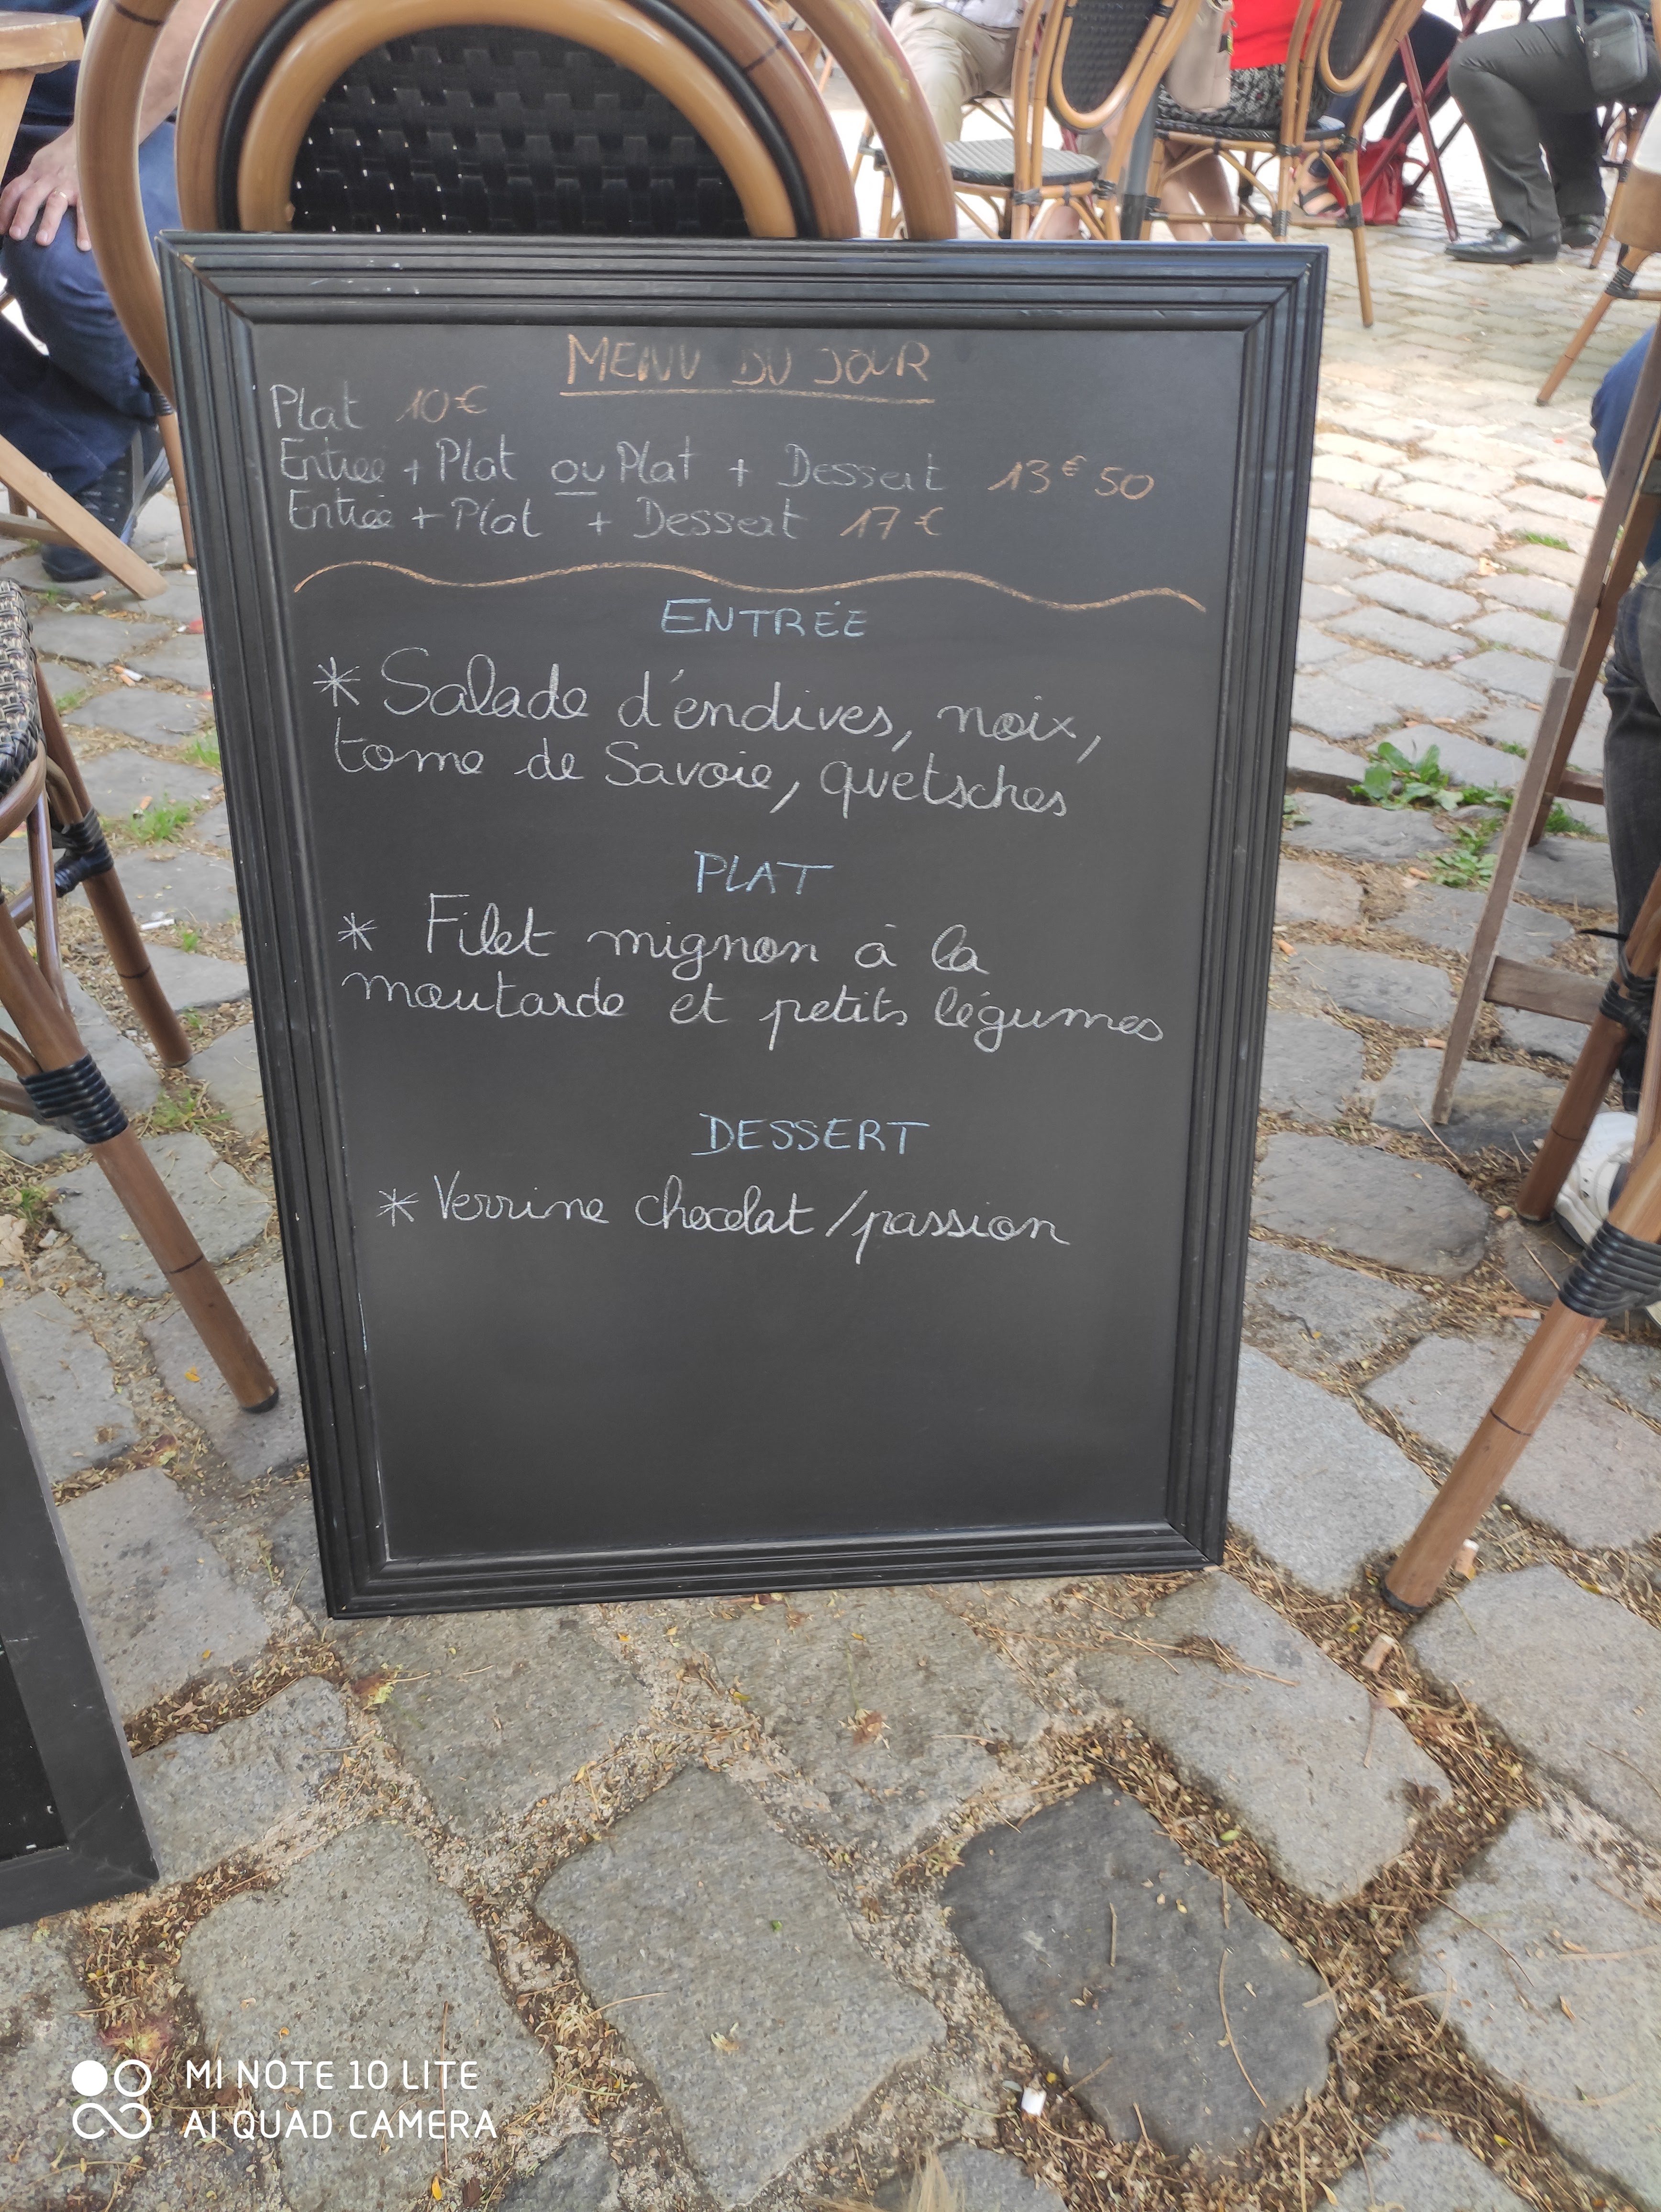 MENU DU JOUR
Plat 10€
Entrée + Plat ou Plat + Dessert 13€50
Entrée + Plat + Dessert 17€
ENTRÉE
* Salade d'endives, noix,
tome de Savoie, quetsches
PLAT
* Filet mignon à la
moutarde et petits légumes
DESSERT
* Verrine chocolat/passion
MI NOTE 10 LITE
AI QUAD CAMERA